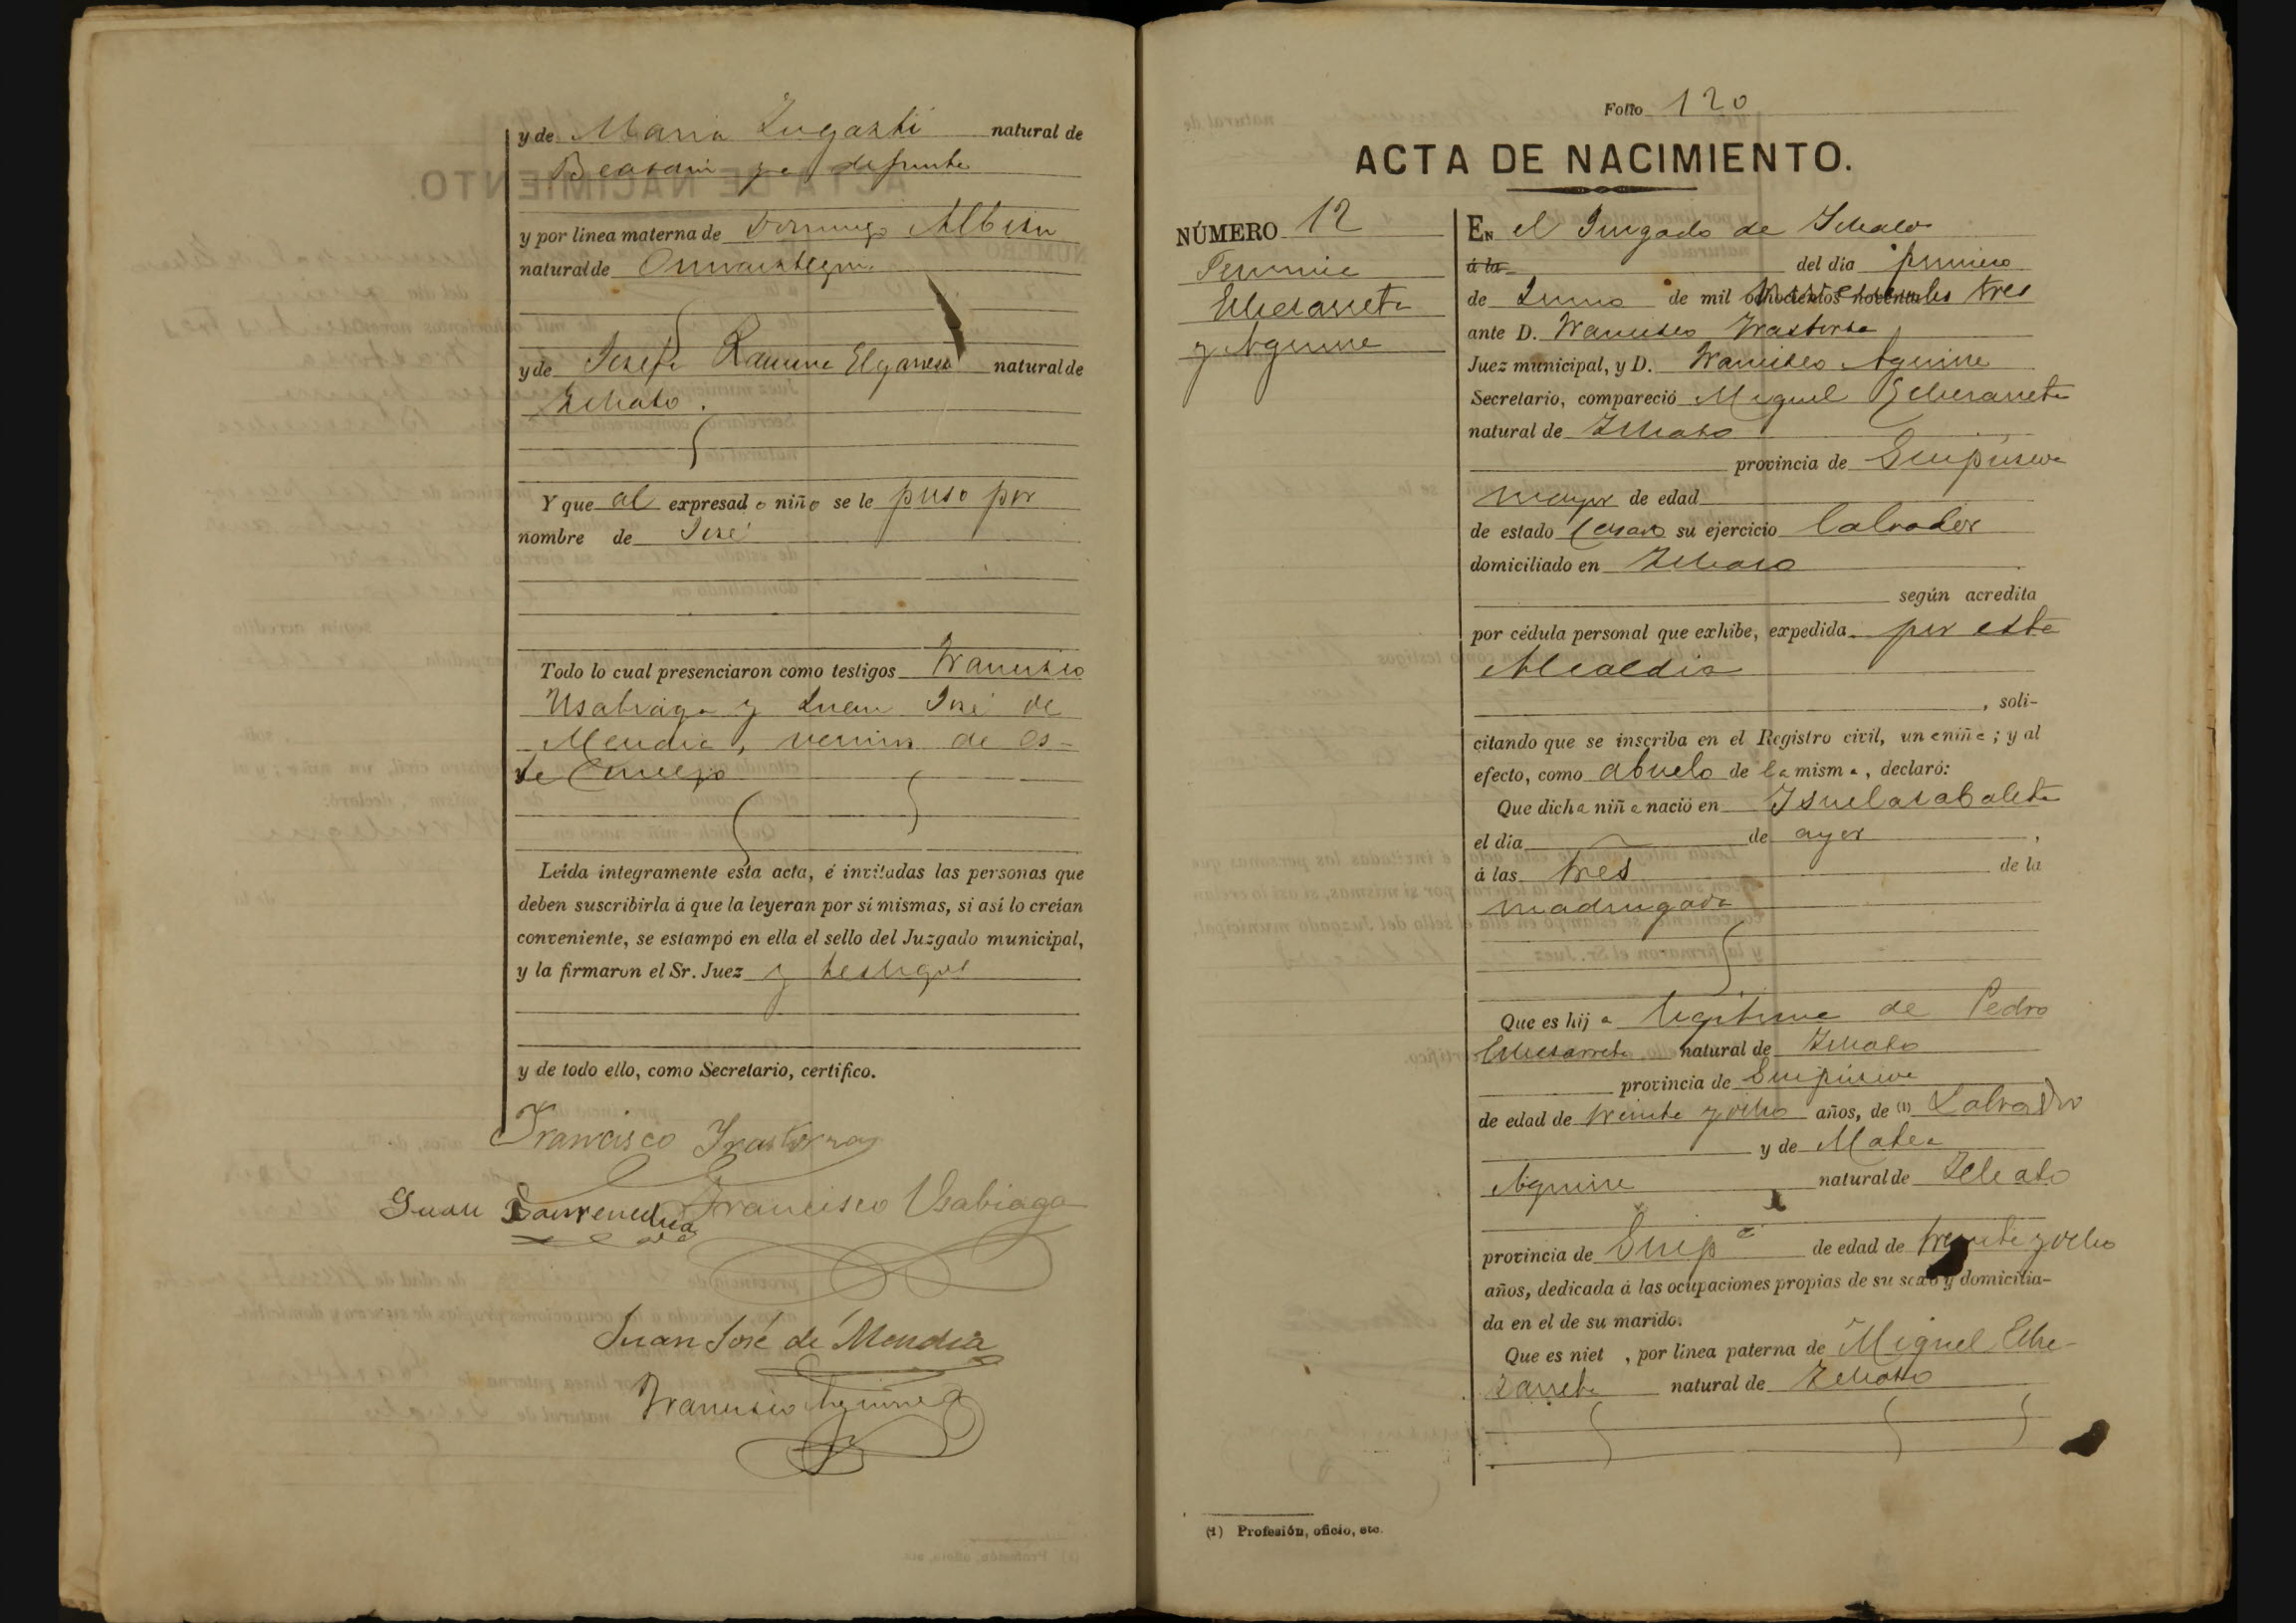 y de Maria Zugasti natural de
Beasain ya difunta
y por linea materna de Domingo Albisu
natural de Ormaiztegui
y de Josefa Ramona Elgarresta natural de
Ichaso.
Y que al expresado niño se le puso por
nombre de José
Todo lo cual presenciaron como testigos Francisco
Usabiaga y Juan José de
Mendia, vecinos de es-
te Concejo
Leida integramente esta acta, é invitadas las personas que
deben suscribirla á que la leyeran por sí mismas, si así lo creían
conveniente, se estampó en ella el sello del Juzgado municipal,
y la firmaron el Sr. Juez y testigos
y de todo ello, como Secretario, certifico.
Francisco Irastorza
Juan Francisco Usabiaga
Juan José de Mendia
Francisco Aguirre
Folio 120
ACTA DE NACIMIENTO.
NÚMERO 12
Fermina
Echezarreta
y Aguirre
EN el Juzgado de Ichaso
á la del dia primero
de Junio de mil ochocientos noventa tres
ante D. Francisco Irastorza
Juez municipal, y D. Francisco Aguirre
Secretario, compareció Miguel Echezarreta
natural de Ichaso
provincia de Guipúzcoa
mayor de edad
de estado Casado su ejercicio labrador
domiciliado en Ichaso
según acredita
por cédula personal que exhibe, expedida por esta
Alcaldia
, soli-
citando que se inscriba en el Registro civil, una niña; y al
efecto, como abuelo de la misma, declaró:
Que dicha niña nació en
el dia de ayer,
á las tres de la
madrugada
Que es hija legitima de Pedro
Echezarreta natural de Ichaso
provincia de Guipúzcoa
de edad de treinta y ocho años, de (1) Labrador
y de Matea
Aguirre natural de Ichaso
provincia de Guipª de edad de treinta y ocho
años, dedicada á las ocupaciones propias de su sexo y domicilia-
da en el de su marido.
Que es niet , por linea paterna de Miguel Eche-
zarreta natural de Ichaso
(1) Profesión, oficio, etc.